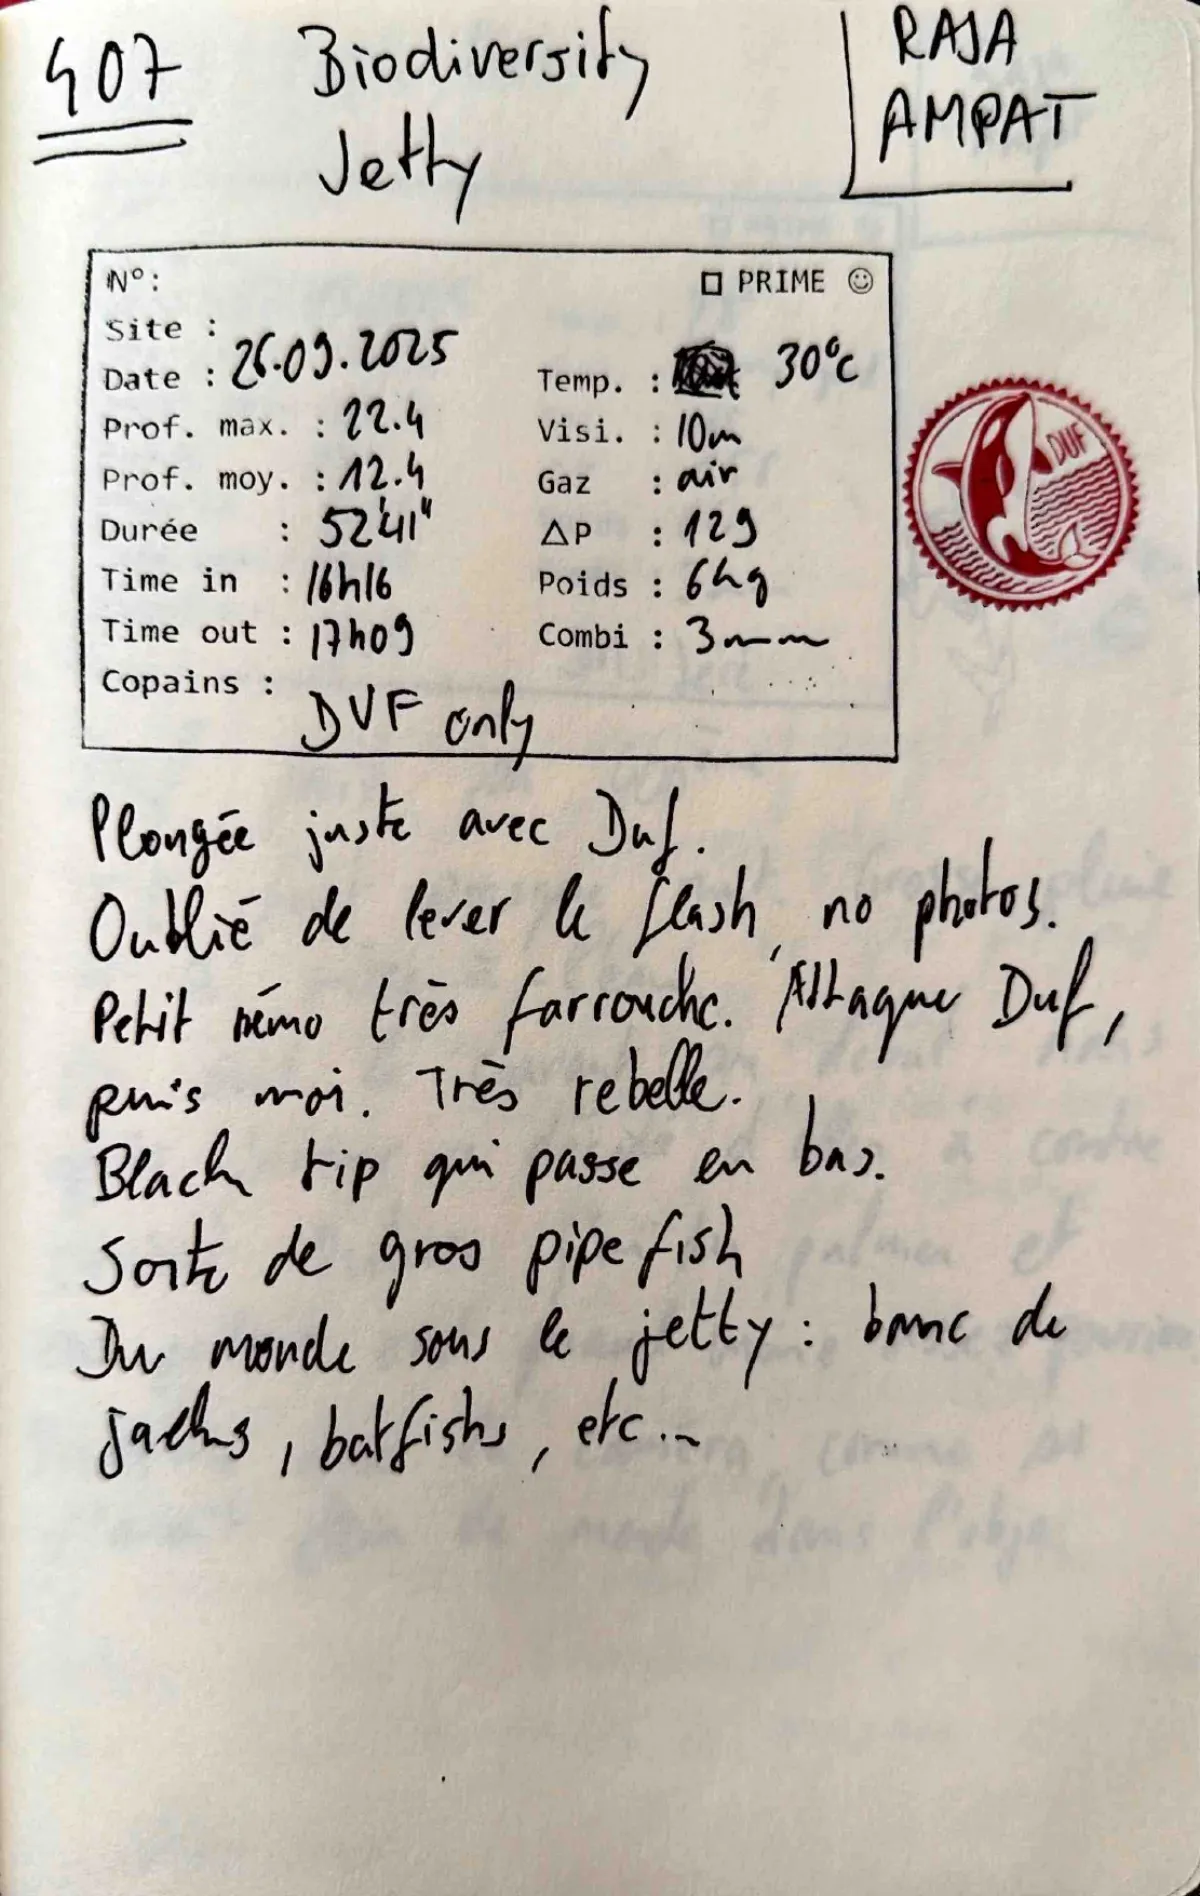 407
Biodiversity
Jetty
RAJA
AMPAT
N°:
☐ PRIME ☺
Site :
Date : 26.09.2025
Temp. : 30°c
Prof. max. : 22.4
Visi. : 10m
Prof. moy. : 12.4
Gaz : air
Durée : 52'41"
ΔP : 129
Time in : 16h16
Poids : 6kg
Time out : 17h09
Combi : 3mm
Copains : DUF only
DUF
Plongée juste avec Duf.
Oublié de lever le flash, no photos.
Petit némo très farrouche. Attaque Duf,
puis moi. Très rebelle.
Black tip qui passe en bas.
Sorte de gros pipefish
Du monde sous le jetty : banc de
jacks, batfishs, etc...